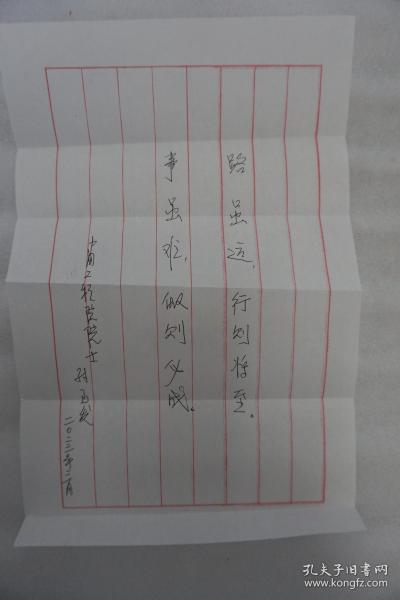 路虽远，行则将至。
事虽难，做则必成。
中国工程院院士 孙玉发
二〇二三年二月
孔夫子旧书网
www.kongfz.com